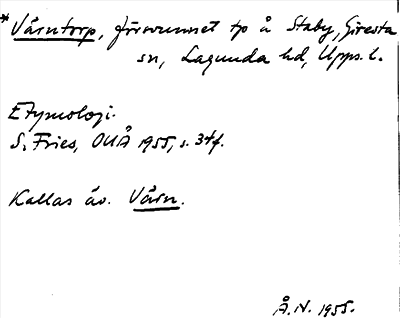 *Vårntorp, försvunnet tp å Staby, Giresta
sn, Lagunda hd, Upps. l.
Etymologi.
S. Fries, OUÅ 1955, s. 34f.
Kallas äv. Vårn.
Å.N. 1955.